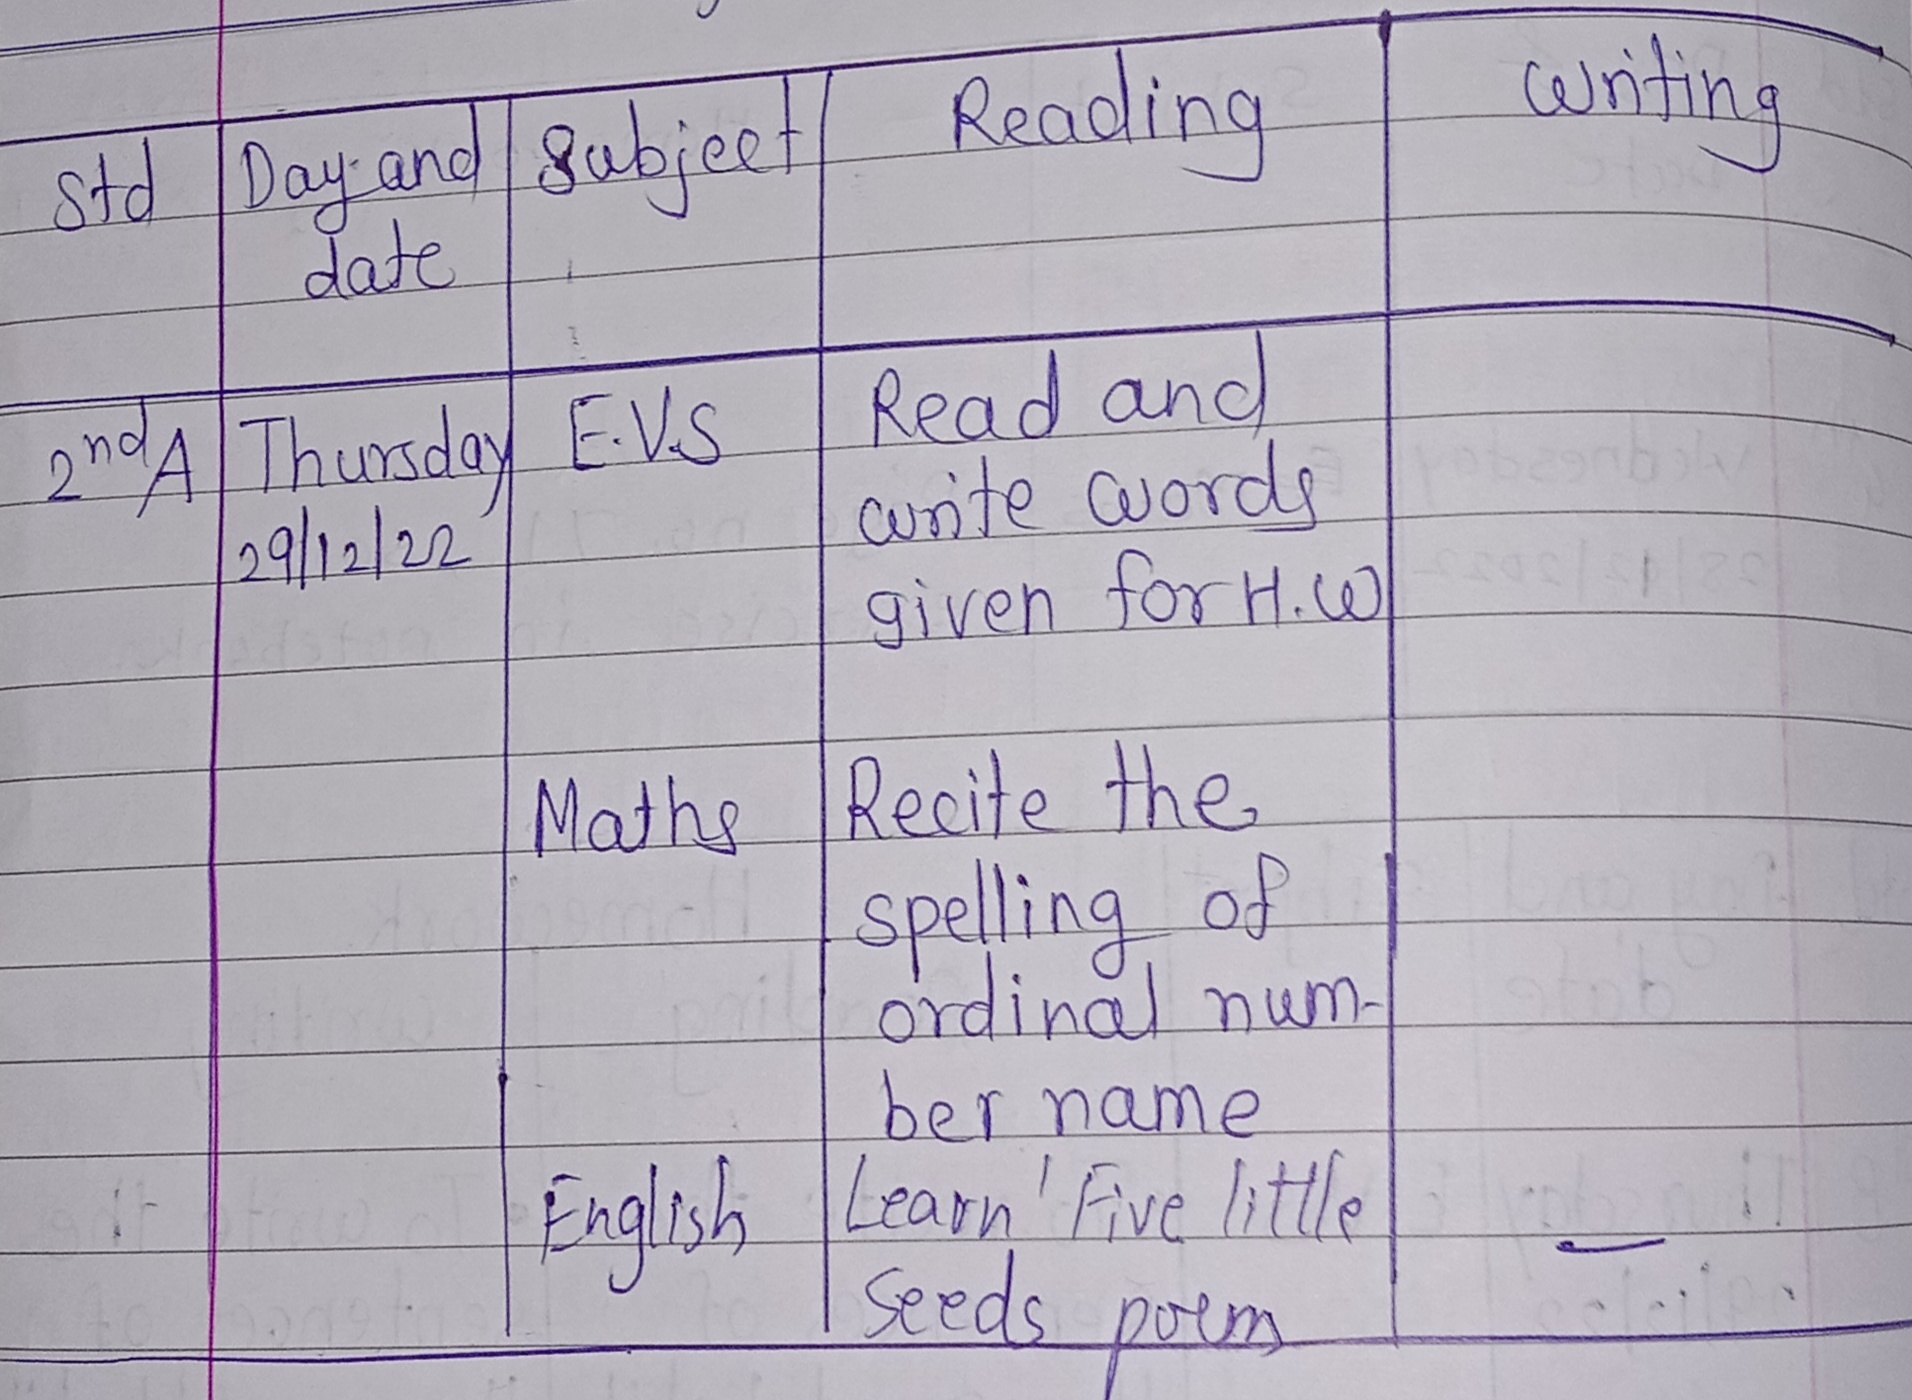 Std Day and Subject Reading Writing
date
2nd A Thursday E.V.S Read and
29/12/22 write words
given for H.W
Maths Recite the
spelling of
ordinal num-
ber name
English Learn 'Five little —
Seeds poem